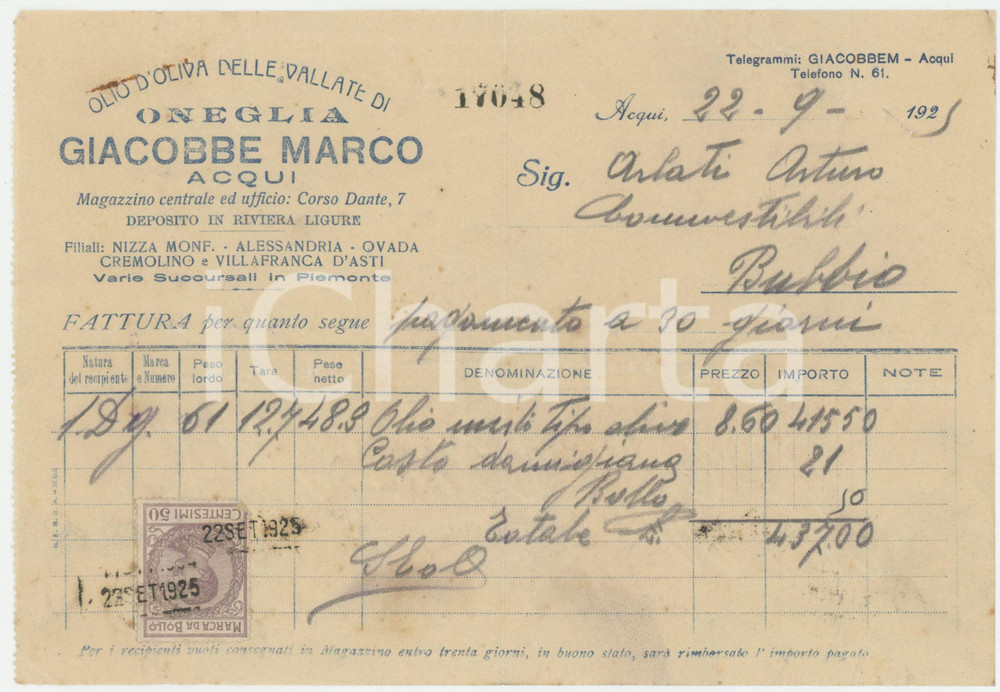 OLIO D'OLIVA DELLE VALLATE DI
ONEGLIA
GIACOBBE MARCO
ACQUI
Magazzino centrale ed ufficio: Corso Dante, 7
DEPOSITO IN RIVIERA LIGURE
Filiali: NIZZA MONF. - ALESSANDRIA - OVADA
CREMOLINO e VILLAFRANCA D'ASTI
Varie Succursali in Piemonte
17048
Telegrammi: GIACOBBEM - Acqui
Telefono N. 61.
Acqui, 22 - 9 - 1925
Sig. Arlati Arturo
Commestibili
Bubbio
FATTURA per quanto segue pagamento a 30 giorni
iCharta
Natura del recipiente Marca e Numero Peso lordo Tara Peso netto DENOMINAZIONE PREZZO IMPORTO NOTE
1 Dg. 61 12.7 48.3 Olio misti Tipo oliva 8.60 415 50
Costo damigiana 21
Bollo 50
Totale L. 437.00
CENTESIMI 50
22 SET 1925
22 SET 1925
MARCA DA BOLLO
Per i recipienti vuoti consegnati in Magazzino entro trenta giorni, in buono stato, sarà rimborsato l' importo pagato.